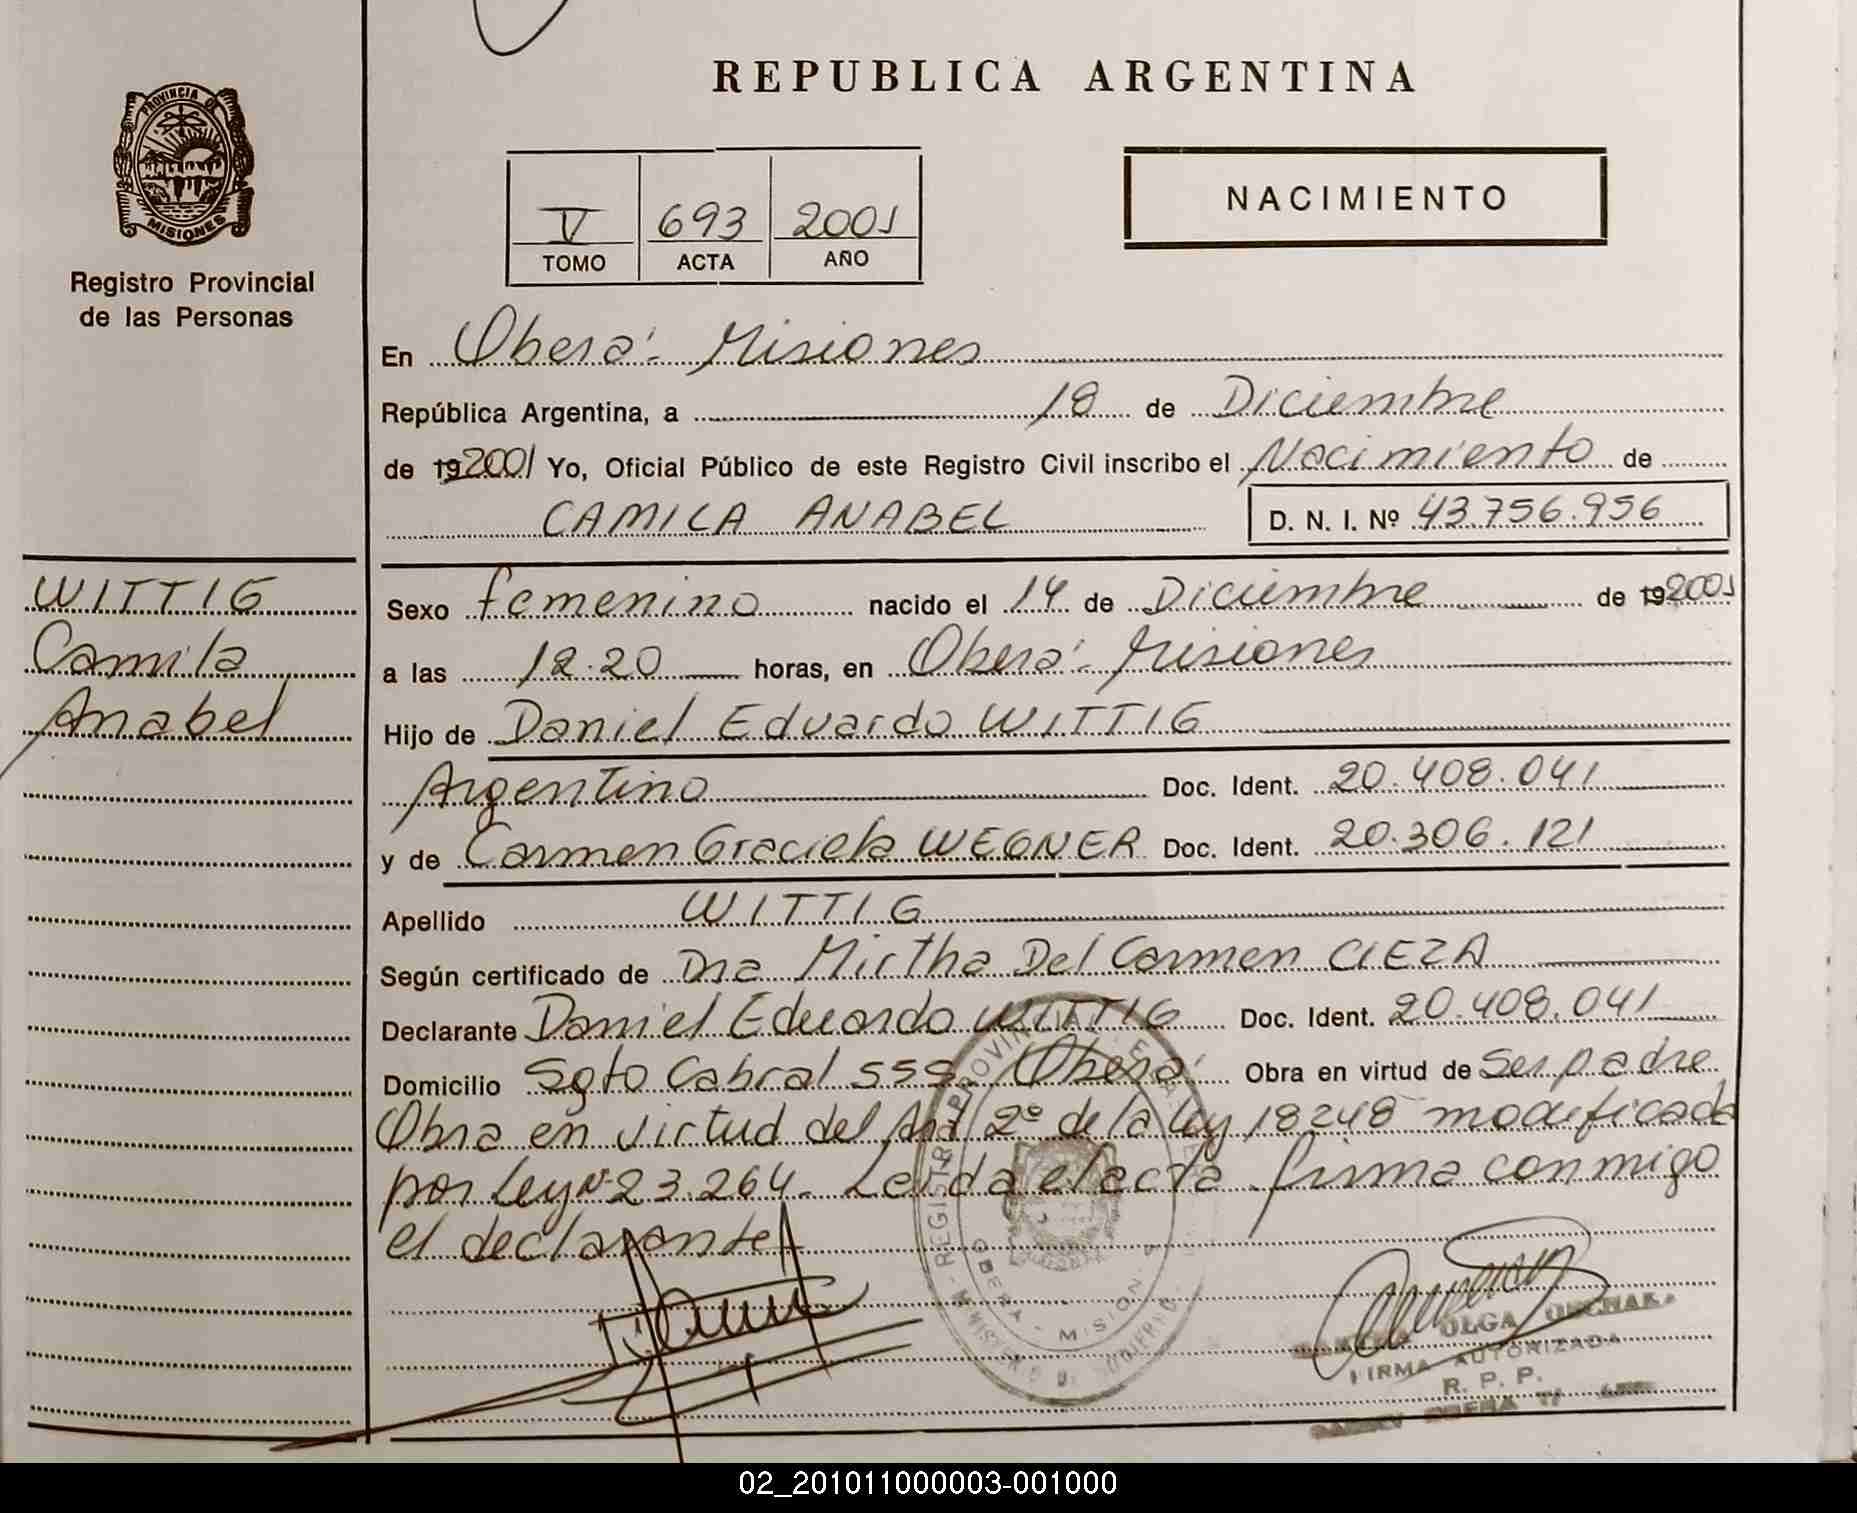 REPUBLICA ARGENTINA
PROVINCIA D
MISIONES
Registro Provincial
de las Personas
V 693 2001
TOMO ACTA AÑO
NACIMIENTO
En Oberá - Misiones
República Argentina, a 18 de Diciembre
de 192001 Yo, Oficial Público de este Registro Civil inscribo el Nacimiento de
CAMILA ANABEL D. N. I. Nº 43.756.956
WITTIG
Camila
Anabel
Sexo femenino nacido el 14 de Diciembre de 192001
a las 12.20 horas, en Oberá - Misiones
Hijo de Daniel Eduardo WITTIG
Argentino Doc. Ident. 20.408.041
y de Carmen Graciela WEGNER Doc. Ident. 20.306.121
Apellido WITTIG
Según certificado de Dra Mirtha Del Carmen CIEZA
Declarante Daniel Eduardo WITTIG Doc. Ident. 20.408.041
Domicilio Sgto Cabral 555 Oberá Obra en virtud de Ser padre
Obra en virtud del Art 2º de la Ley 18248 modificada
por Ley Nº 23.264. Leída el acta firma conmigo
el declarante
OBERA - MISIONES
OLGA
FIRMA AUTORIZADA
R. P. P.
02_201011000003-001000